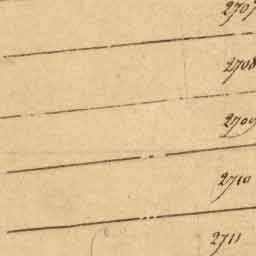 2707
2708
2709
2710
2711